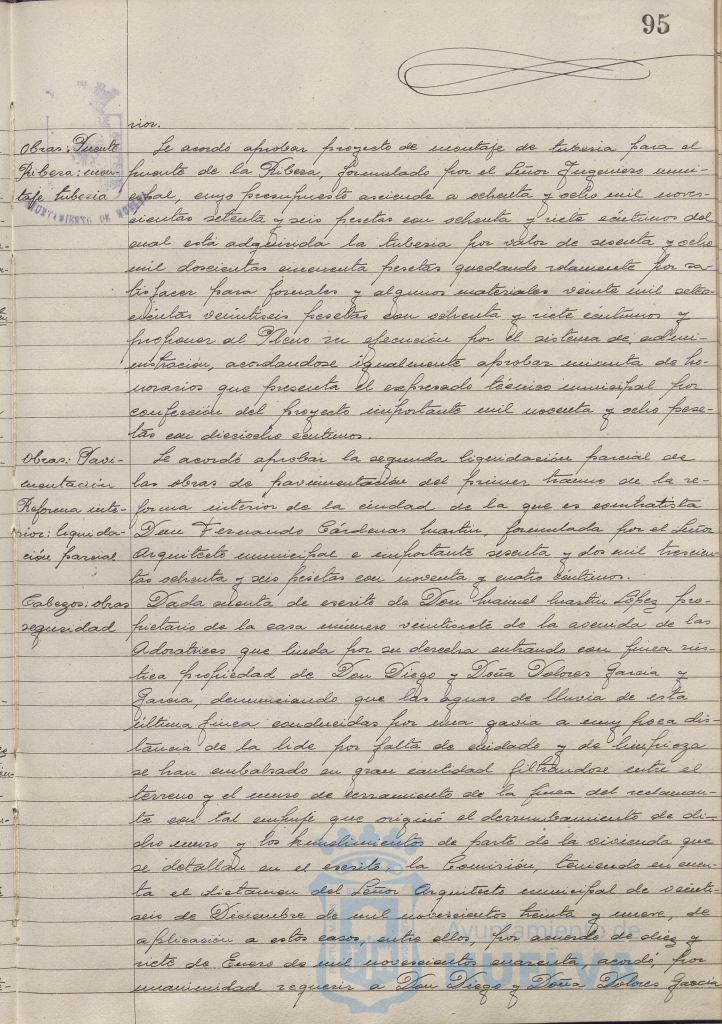 95
rior.
Obras: Puente
Ribera: mon-
taje tuberia
AYUNTAMIENTO DE HUELVA
Se acordó aprobar proyecto de montaje de tuberia para el
puente de la Ribera, formulado por el Señor Ingeniero muni-
cipal, cuyo presupuesto asciende a ochenta y ocho mil nove-
cientas setenta y seis pesetas con ochenta y siete céntimos del
cual está adquirida la tuberia por valor de sesenta y ocho
mil doscientas cincuenta pesetas quedando solamente por sa-
tisfacer para jornales y algunos materiales veinte mil sete-
cientas veintiseis pesetas con ochenta y siete centimos y
proponer al Pleno su ejecución por el sistema de admi-
nistración, acordandose igualmente aprobar minuta de ho-
norarios que presenta el expresado técnico municipal por
confección del proyecto importante mil noventa y ocho pese-
tas con dieciocho centimos.
Obras: Pavi-
mentación
Reforma inte-
rior: liquida-
ción parcial
Se acordó aprobar la segunda liquidación parcial de
las obras de pavimentación del primer tramo de la re-
forma interior de la ciudad de la que es contratista
Don Fernando Cárdenas Martin, formulada por el Señor
Arquitecto municipal e importante sesenta y dos mil trescien-
tas ochenta y seis pesetas con noventa y cuatro céntimos.
Cabezos: obras
seguridad
Dada cuenta de escrito de Don Manuel Martin López pro-
pietario de la casa número veintisiete de la avenida de las
Adoratrices que linda por su derecha entrando con finca rús-
tica propiedad de Don Diego y Doña Dolores Garcia y
Garcia, denunciando que las aguas de lluvia de esta
última finca conducidas por una gavia a muy poca dis-
tancia de la lide por falta de cuidado y de limpieza
se han embalsado en gran cantidad filtrandose entre el
terreno y el muro de cerramiento de la finca del reclaman-
te con tal empuje que originó el derrumbamiento de di-
cho muro y los hundimientos de parte de la vivienda que
se detallan en el escrito, la Comisión, teniendo en cuen-
ta el dictamen del Señor Arquitecto municipal de veinti-
seis de Diciembre de mil novecientos treinta y nueve, de
aplicación a estos casos, entre ellos, por acuerdo de diez y
siete de Enero de mil novecientos cuarenta acordó, por
unanimidad requerir a Don Diego y Doña Dolores Garcia
Ayuntamiento de
HUELVA